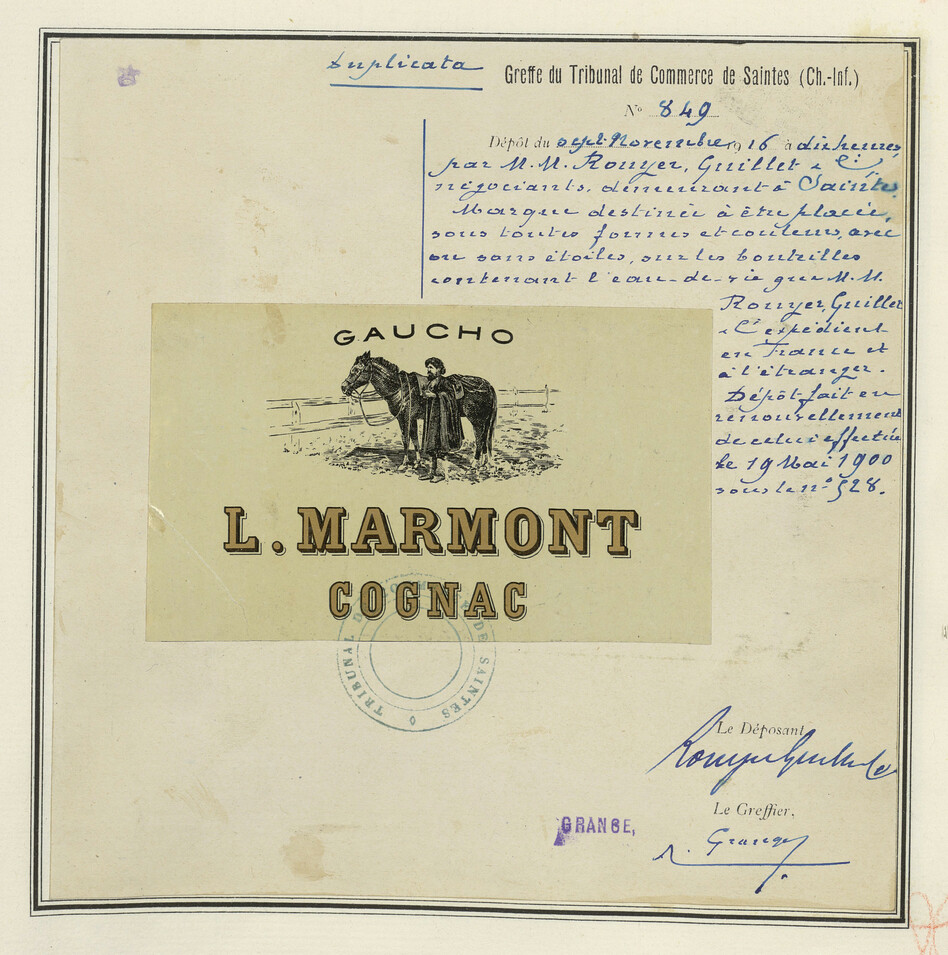 Duplicata
Greffe du Tribunal de Commerce de Saintes (Ch.-Inf.)
N° 849
Dépôt du sept Novembre 1916 à dix heures,
par M.M. Rouyer, Guillet & Cie
négociants, demeurant à Saintes.
Marque destinée à être placée,
sous toutes formes et couleurs, avec
ou sans étoiles, sur les bouteilles
contenant l'eau-de-vie que M.M.
Rouyer, Guillet
& Cie expédient
en France et
à l'étranger.
Dépôt fait en
renouvellement
de celui effectué
le 19 Mai 1900
sous le n° 528.
GAUCHO
L. MARMONT
COGNAC
TRIBUNAL DE COMMERCE DE SAINTES
Le Déposant
Rouyer Guillet & Cie
Le Greffier,
GRANGE,
Grange